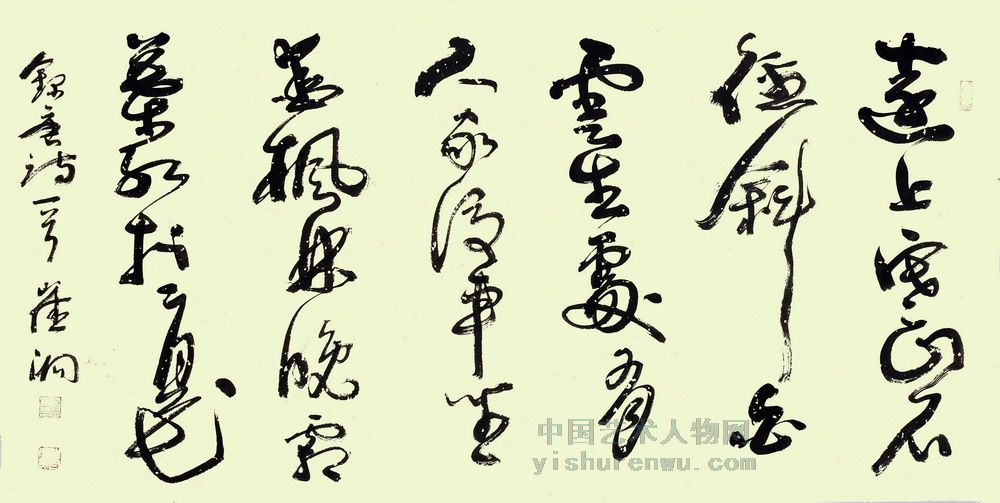 遠上寒山石
徑斜白
雲生處有
人家停車坐
愛楓林晚霜
葉紅於二月花
錄唐詩一首
中国艺术人物网
yishurenwu.com